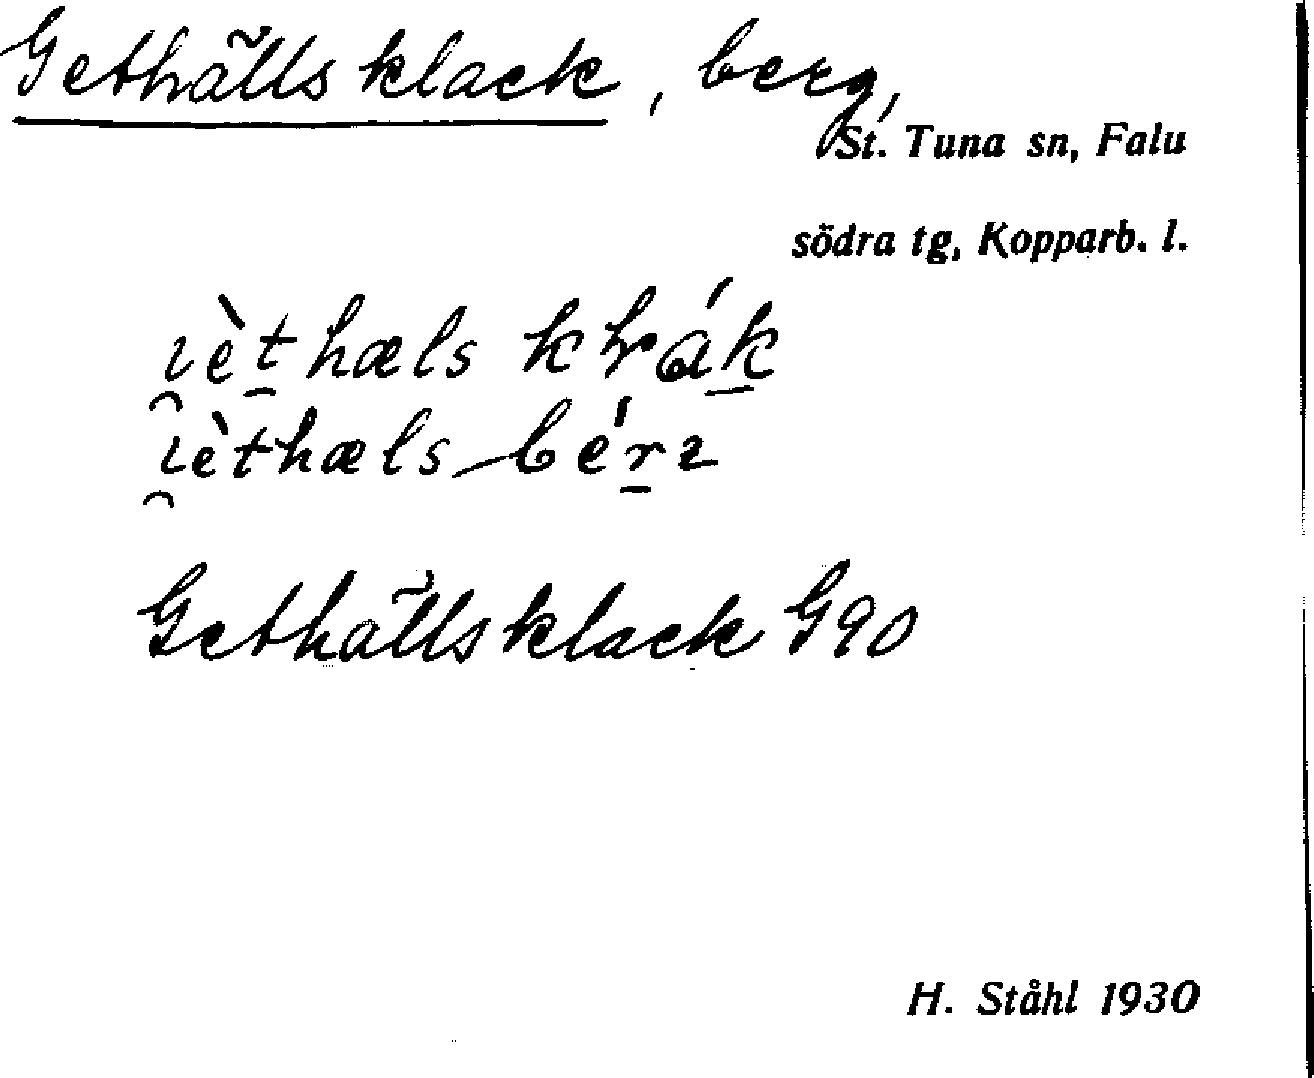 Gethällsklack, berg,
St. Tuna sn, Falu
södra tg, Kopparb. l.
ı̯èt̠hæls kƚák̠
ı̯èthæls-bér̠ı
Gethällsklack G90
H. Ståhl 1930